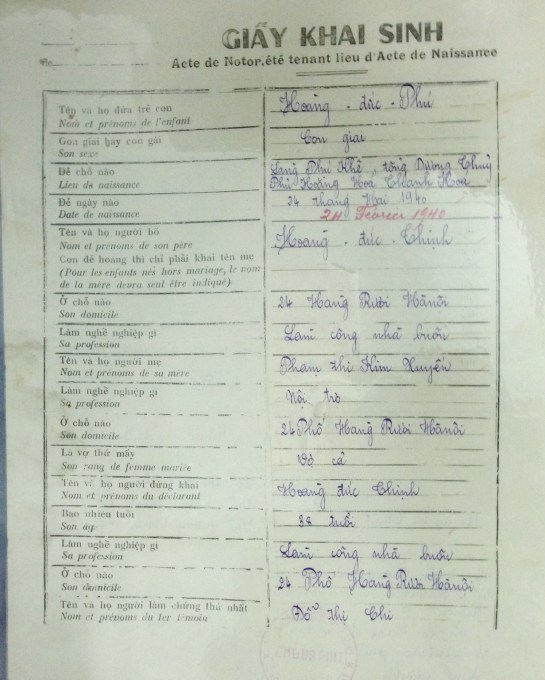 GIẤY KHAI SINH
Acte de Notor.été tenant lieu d'Acte de Naissance
Tên và họ đứa trẻ con
Nom et prénoms de l'enfant
Hoàng - đức - Phú
Con giai hay con gái
Son sexe
Con giai
Đẻ chỗ nào
Lieu de naissance
Làng Phú Khê, tổng Dương Thuỷ
Phủ Hoằng Hóa Thanh Hoá
Đẻ ngày nào
Date de naissance
24 tháng Hai 1940
24 Février 1940
Tên và họ người bố
Nom et prénoms de son père
Hoàng - đức - Thịnh
Con đẻ hoang thì chỉ phải khai tên mẹ
(Pour les enfants nés hors mariage, le nom
de la mère devra seul être indiqué)
Ở chỗ nào
Son domicile
24 Hàng Rươi Hànội
Làm nghề nghiệp gì
Sa profession
Làm công nhà buôn
Tên và họ người mẹ
Nom et prénoms de sa mère
Phạm thị Kim Xuyến
Làm nghề nghiệp gì
Sa profession
Nội trợ
Ở chỗ nào
Son domicile
24 Phố Hàng Rươi Hànội
Là vợ thứ mấy
Son rang de femme mariée
Vợ cả
Tên và họ người đứng khai
Nom et prénoms du déclarant
Hoàng đức Thịnh
Bao nhiêu tuổi
Son âge
38 tuổi
Làm nghề nghiệp gì
Sa profession
Làm công nhà buôn
Ở chỗ nào
Son domicile
24 Phố Hàng Rươi Hànội
Tên và họ người làm chứng thứ nhất
Nom et prénoms du 1er témoin
Đỗ thị Chi